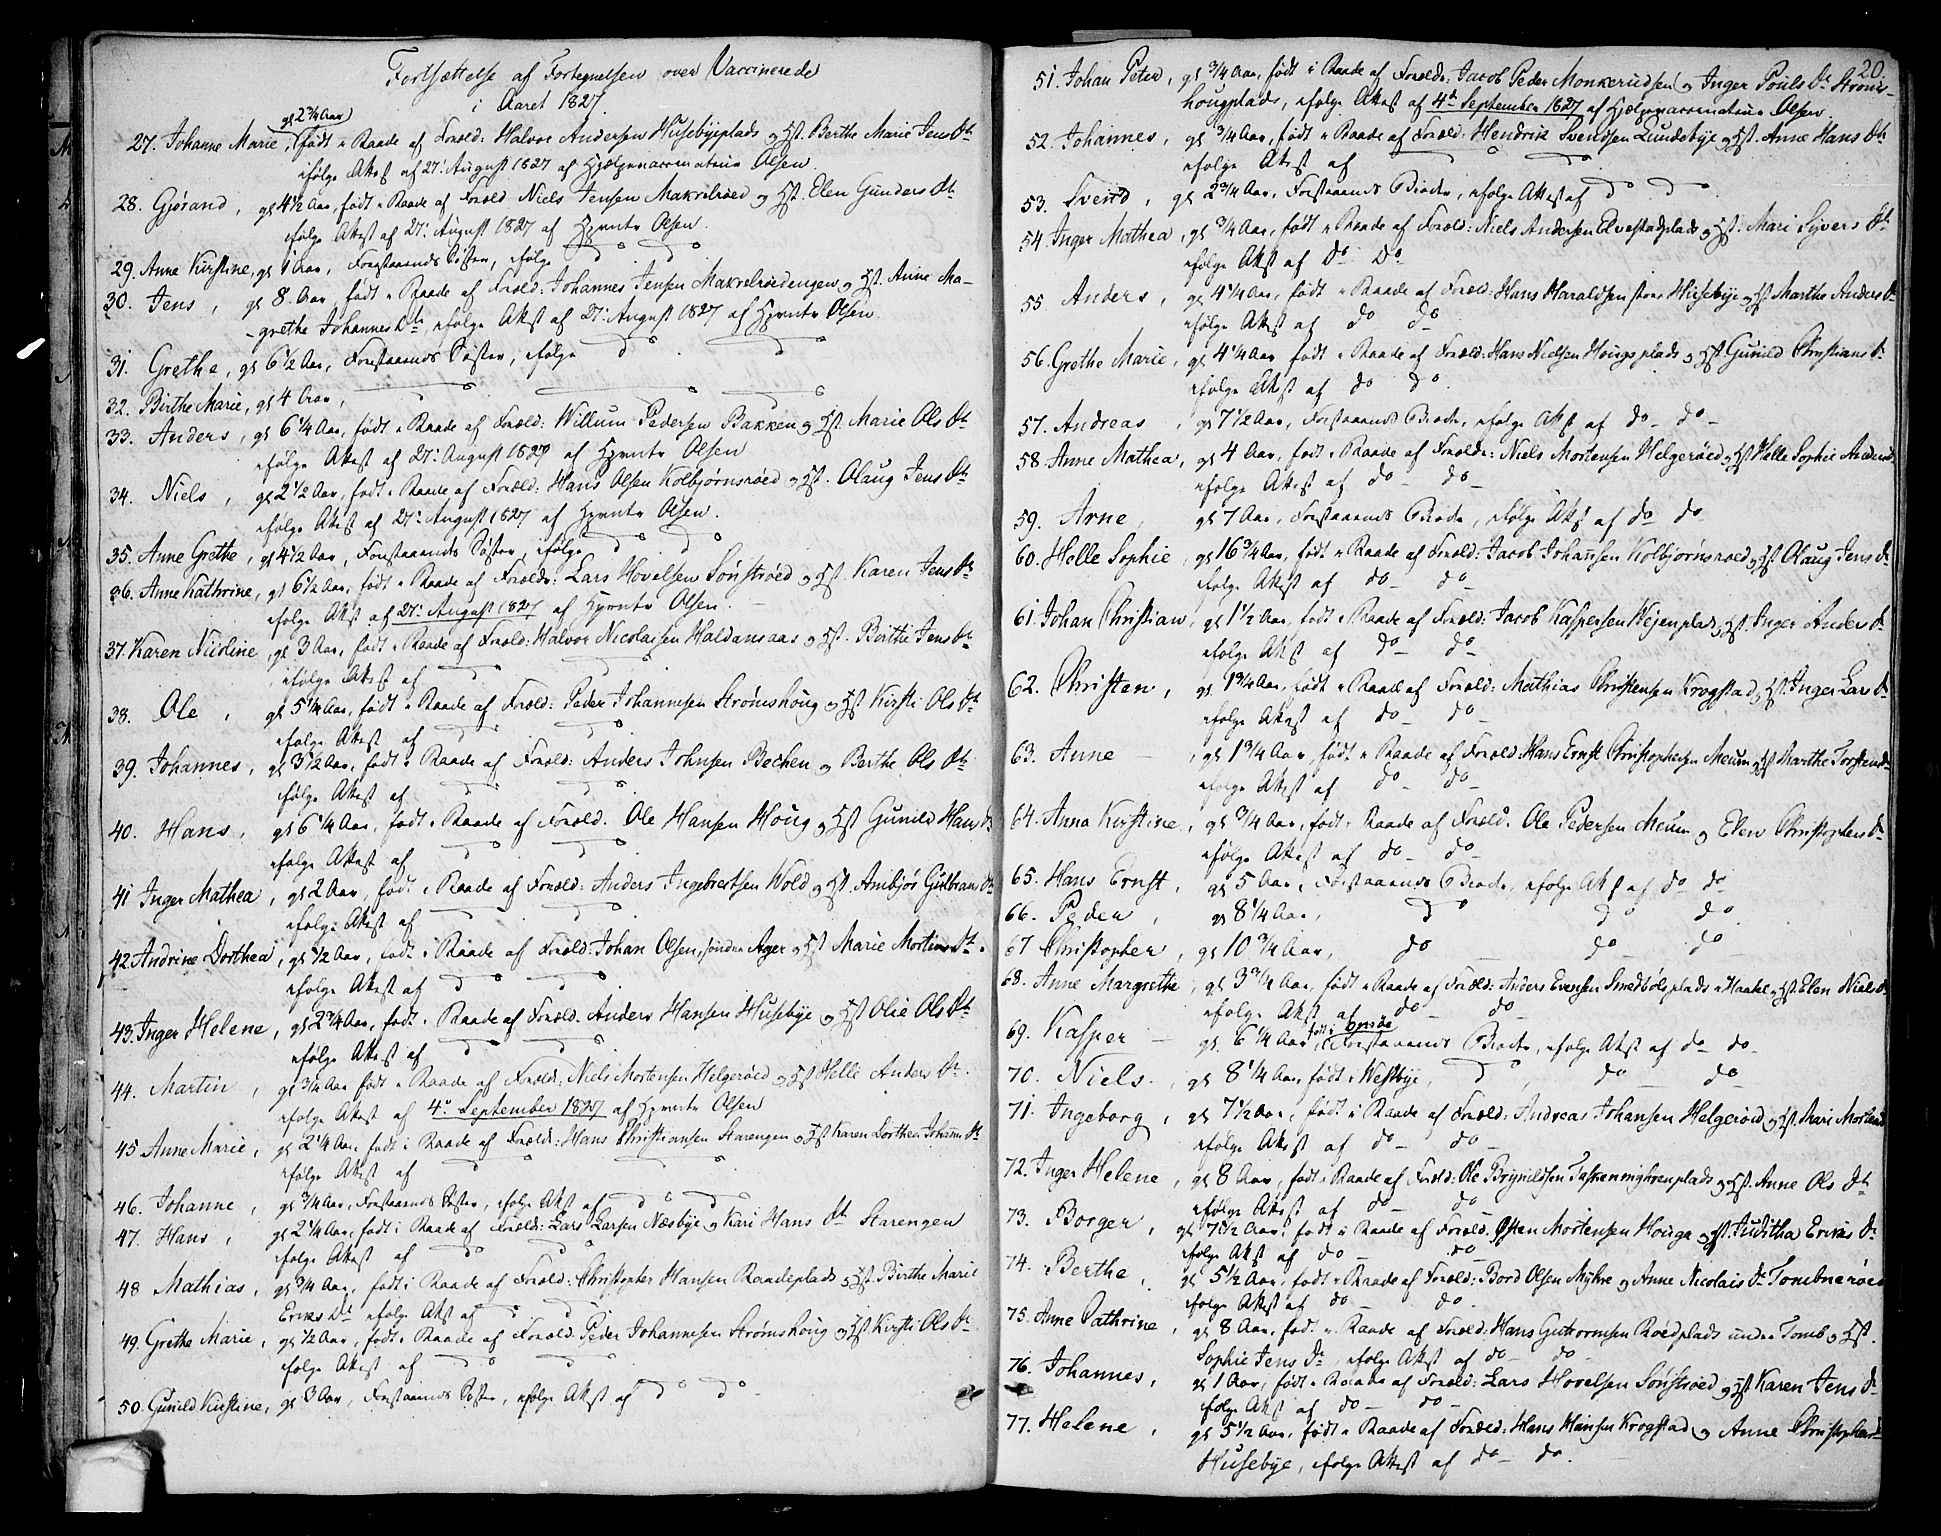 Fortsættelse af Fortegnelsen over Vaccinerede
i Aaret 1827
gl 2 3/4 Aar
27. Johanne Marie, født i Raade af Foræld: Halvor Andersen Husebyeplads og Hst. Berthe Marie Jens Dt
ifølge Attest af 27. August 1827 af Hjelpevaccinateur Olsen
28. Gjørand, gl 4 1/2 Aar, født i Raade af Foræld Niels Jensen Makrelrøed og Hst. Elen Gunders Dt.
ifølge Attest af 27. August 1827 af Olsen.
29. Anne Kirstine, gl 1 Aar, Forstaaends Søster, ifølge do do
30. Jens, gl 8 Aar, født i Raade af Foræld: Johannes Jensen Makrelrøedengen og Hst. Anne Ma-
grethe Johannes Dtr, ifølge Attst af 27. August 1827 af Olsen.
31. Grethe, gl 6 1/2 Aar, Forstaaends Søster, ifølge do do
32. Birthe Marie, gl 4 Aar, do do do
33. Anders, gl 6 1/4 Aar, født i Raade af Foræld: Willum Pedersen Bakken og Hst Marie Ols Dt
ifølge Attest af 27. August 1827 af Olsen
34. Niels, gl 2 1/2 Aar, født i Raade af Foræld: Hans Olsen Kolbjørnsrøed og Hst. Olaug Jens Dt
ifølge Attest af 27. August 1827 af Olsen.
35. Anne Grethe, gl 4 1/2 Aar, Forstaaends Søster, ifølge do do
36. Anne Kathrine, gl 6 1/2 Aar, født i Raade af Forældr: Lars Hovelsen Sønstrøed og Hst. Karen Jens Dt
ifølge Attst af 27. August 1827 af Olsen.
37. Karen Nicoline, gl 3 Aar, født i Raade af Foræld: Halvor Nicolaisen Haldansaas og Hst. Birthe Jens Dt
ifølge Attest af do do
38. Ole, gl 5 1/4 Aar, født i Raade af Foræld: Peder Johannesen Strømshoug og Hst Kirsti Ols Dt
ifølge Attest af do do
39. Johannes, gl 3 1/2 Aar, født i Raade af Foræld: Anders Johnsen Bechen og Berthe Ols Dt
ifølge Attest af do do
40. Hans, gl 6 1/4 Aar, født i Raade af Foræld. Ole Hansen Houg og Hst Gunild Hans D
ifølge Attest af do do
41 Inger Mathea, gl 2 Aar, født i Raade af Foræld: Anders Ingebretsen Wold og Hst. Anibjør Gulbrans Dt
ifølge Attest af do do
42. Andrine Dorthea, gl 1/2 Aar, født i Raade af Foræld: Johan Olsen, søndre Ager og Hst Marie Mortins Dt.
ifølge Attest af do do
43. Inger Helene, gl 2 3/4 Aar, født i Raade af Foræld. Anders Hansen Husebye og Hst Olie Ols Dt
ifølge Attest af do do
44. Martin, gl 3/4 Aar født i Raade af Foræld: Niels Mortensen Helgerøed og Hst Helle Anders Dt.
ifølge Attest af 4. September 1827 af Olsen
45 Anne Marie, gl 2 1/4 Aar, født i Raade af Foræld: Hans Christiansen Starengen og Hst Karen Dorthea Johann Dt
ifølge Attest af do do
46. Johanne, gl 3/4 Aar, Forstaaends Søster, ifølge Attst af do do
47. Hans, gl 2 1/4 Aar, født i Raade af Foræld: Lars Larsen Næsbye og Kari Hans Dt Starengen
ifølge Attest af do do
48 Mathias, gl 3/4 Aar, født i Raade af Foræld: Christopher Hansen Raadeplads og Hst Birthe Marie
Eriks Dt ifølge Attst af do do
49. Grethe Marie, gl 1/2 Aar, født i Raade af Foræld: Peder Johannesen Strømshoug og Hst Kirsti Ols Dt
ifølge Attest af do do
50. Gunild Kirstine, gl 3 Aar, Forstaaends Søster, ifølge Attest af do do
20.
51. Johan Peter, gl 3/4 Aar, født i Raade af Forældr: Jacob Peder Monkerudsen og Inger Pouls Dt Strøms-
hougplads, ifølge Attest af 4de September 1827 af Hjælpevaccinateur Olsen
52. Johannes, gl 3/4 Aar, født i Raade af Foræld: Hendrik Svendsen Lundebye og Hst. Anne Hans Dt
ifølge Attest af do do
53. Svend, gl 2 3/4 Aar, Forstaaends Broder, ifølge Attest af do do
54. Inger Mathea, gl 3/4 Aar, født i Raade af Foræld: Niels Andersen Elvestadplads og Hst: Mari Syvers Dt
ifølge Attst af Do Do
55 Anders, gl 4 1/4 Aar, født i Raade af Foræld: Hans Haraldsen store Husebye og Hst Marthe Anders Dt
ifølge Attst af do do
56. Grethe Marie, gl 4 1/4 Aar født i Raade af Foræld: Hans Nielsen Hougsplads og Hst. Gunild Christians Dt
ifølge Attest af do do.
57. Andreas, gl 7 1/2 Aar, Forstaaends Broder, ifølge Attst af do do
58. Anne Mathea, gl 4 Aar, født i Raade af Forældr: Niels Mortensen Helgerøed og Hst Helle Sophie Anders
ifølge Attest af do do
59. Arne, gl 7 Aar, Forstaaends Broder, ifølge Attst af do do
60. Helle Sophie, gl 16 3/4 Aar, født i Raade af Foræld: Jacob Johansen Kolbjørnsroed og Hst Olaug Jens Dt
ifølge Attest af do do
61. Johan Christian, gl 1 1/2 Aar, født i Raade af Foræld: Jacob Kaspersen Wejenplads og Hst. Inger Anders Dt
ifølge Attst af do do
62. Christen, gl 1 3/4 Aar, født i Raade af Foræld: Mathias Christensen Krogstad og Hst. Inger Lars Dt
ifølge Attest af do do
63. Anne, gl 1 3/4 Aar, født i Raade af Foræld: Hans Ernst Christophersen Meum og Hst Marthe Torstensd
ifølge Attest af do do
64. Anna Kirstine, gl 3/4 Aar, født i Raade af Foræld. Ole Pedersen Meum og Elen Christophers Dt
ifølge Attest af do do
65. Hans Ernst, gl 5 Aar, Forstaaends Broder, ifølge Attst af do do
66. Peder, gl 8 1/4 Aar, do do do
67 Christopher, gl 10 3/4 Aar, do do do
68. Anne Margrethe, gl 3 3/4 Aar, født i Raade af Foræld: Anders Evensen Smedbølsplads i Haabøl og Hst. Elen Niels Dt
ifølge Attest af do do
69. Kasper gl. 6 1/4 Aar, født i Onsøe, Forstaaends Broder, ifølge Attst af do do
70. Niels. gl 8 1/4 Aar, født i Westbye, do do do
71. Ingeborg, gl 7 1/2 Aar, født i Raade af Foræld: Andreas Johansen Helgerøed og Hst. Mari Mortens
ifølge Attest af do do
72. Inger Helene, gl 8 Aar, født i Raade af Foræld: Ole Brynildsen Taskenmyhrenplads og Hst. Anne Ols Dt
ifølge Attest af do do
73. Borger, gl 7 1/2 Aar, født i Raade af Foræld. Østen Mortensen Houge og Hst. Juditha Eriks Dt
ifølge Attst af do do
74. Berthe, gl 5 1/2 Aar, født i Raade af Foræld: Bord Olsen Myhre og Anne Nicolais Dt Tombnerøed
ifølge Attst af do do
75. Anne Cathrine, gl 8 Aar, fød. i Raade af Foræld: Hans Guttormsen Roedplads under Tomb og Hst.
Sophie Jens Dt, ifølge Attst af do do
76. Johannes, gl 1 Aar, født i Raade af Foræld: Lars Hovelsen Sønstrøed og Hst. Karen Jens Dt
ifølge Attst af do do
77. Helene, gl 5 1/2 Aar, født i Raade af Foræld: Hans Hansen Krogstad og Anne Christophersd
Husebye, ifølge Attest af do do.